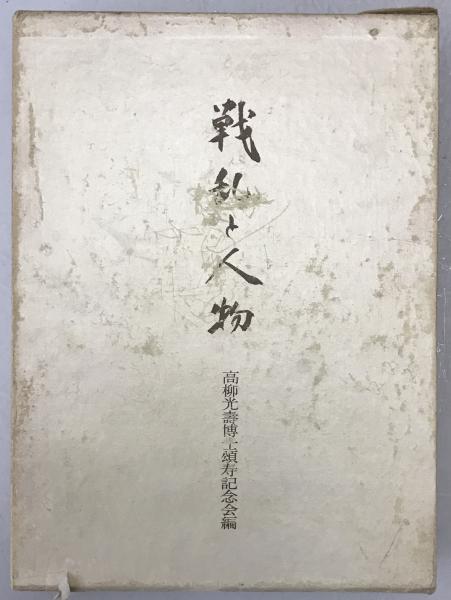 戦乱と人物
高柳光壽博士頌寿記念会編